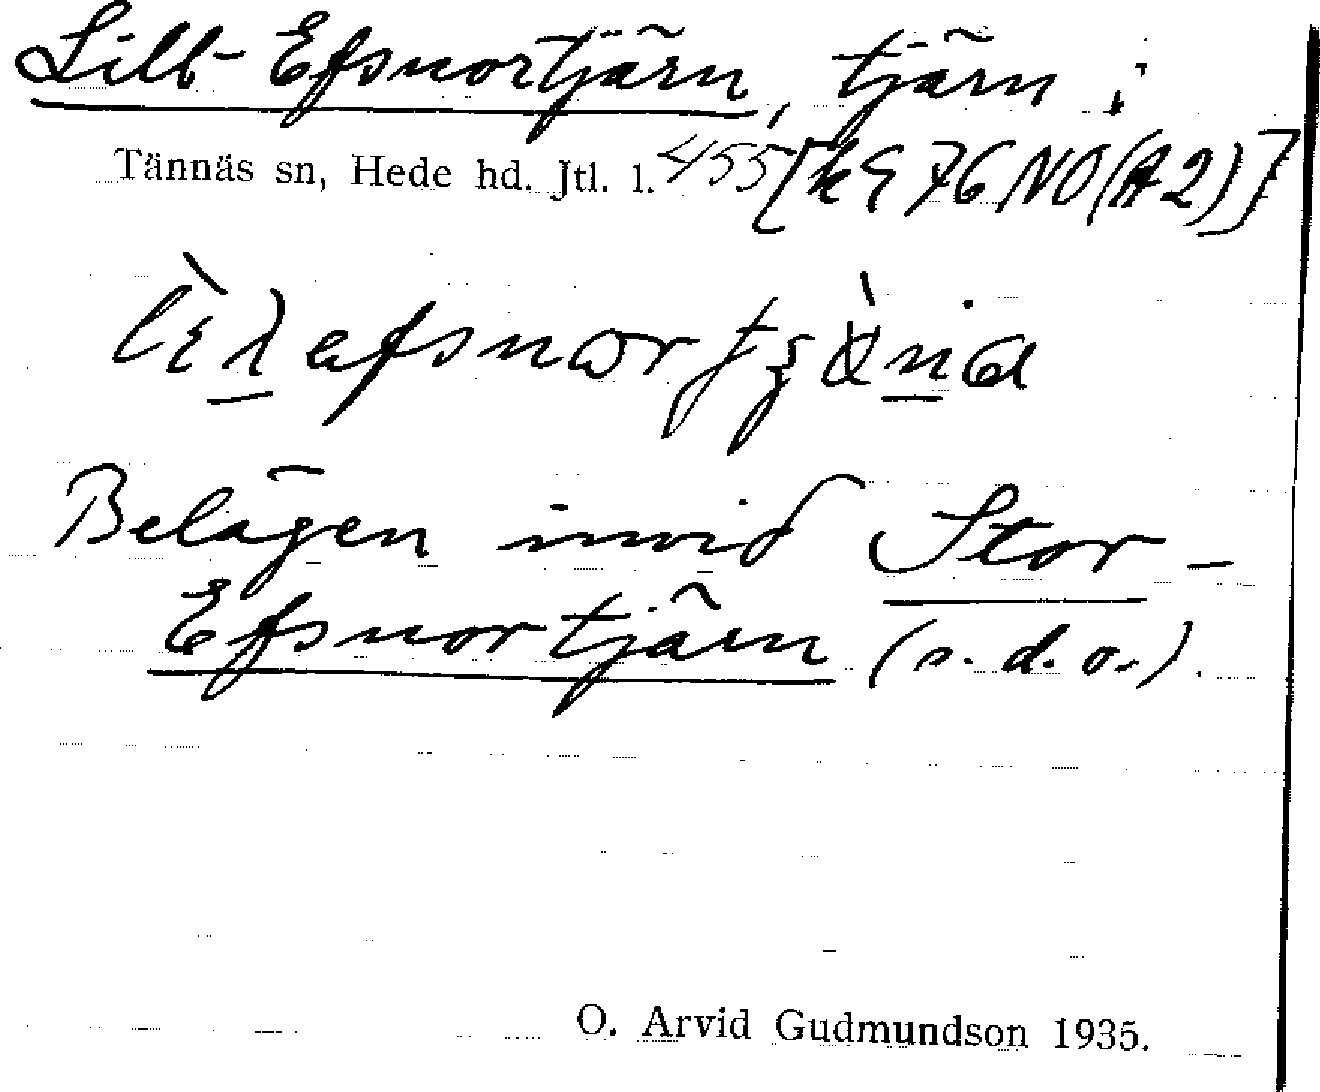 Lill-Efsnortjärn, tjärn;
Tännäs sn, Hede hd. Jtl. l. 455 [k 976 NO(A2)]
Belägen invid Stor-
Efsnortjärn (s. d. o.).
O. Arvid Gudmundson 1935.